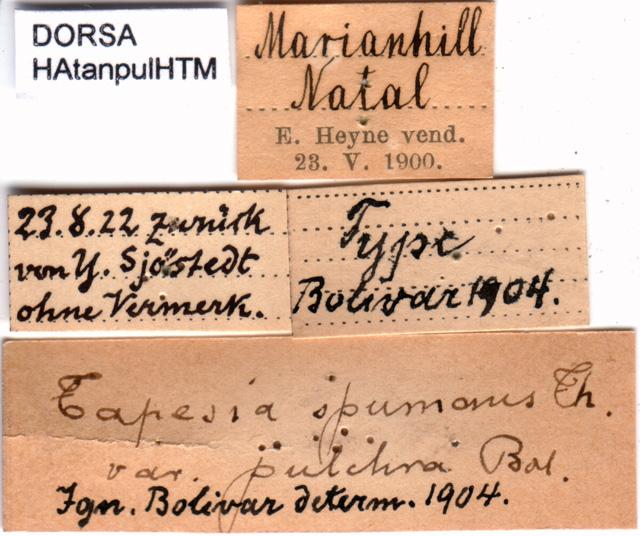 DORSA
HAtanpulHTM
Marianhill
Natal
E. Heyne vend.
23. V. 1900.
23.8.22 zurück
von Y. Sjöstedt
ohne Vermerk.
Type
Bolivar 1904.
Tapesia spumans Th.
var. pulchra Bol.
Ign. Bolivar determ. 1904.